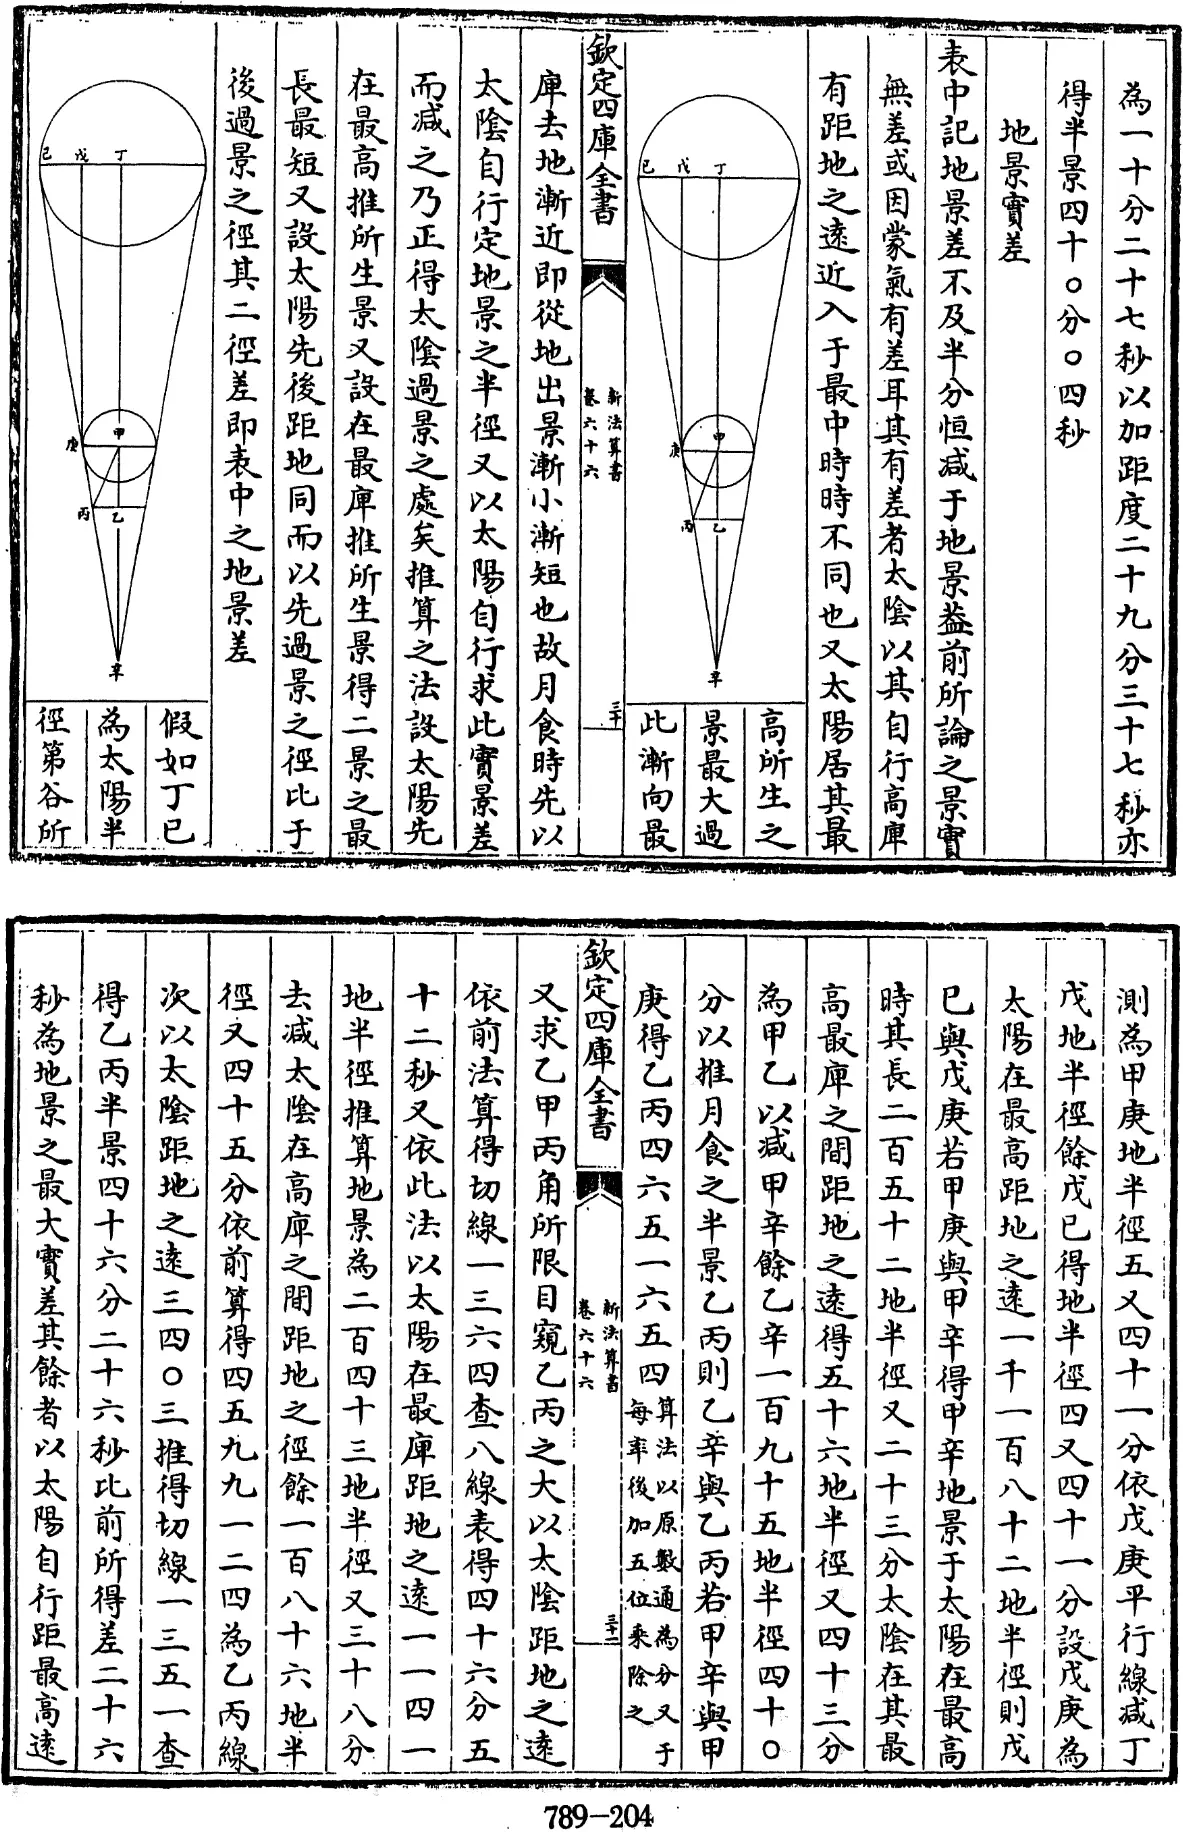 為一十分二十七秒以加距度二十九分三十七秒亦
得半景四十〇分〇四秒
地景實差
表中記地景差不及半分恒减于地景葢前所論之景實
無差或因蒙氣有差耳其有差者太陰以其自行高庳
有距地之遠近入于最中時時不同也又太陽居其最
高所生之
景最大過
此漸向最
己 戊 丁
甲
庚
丙 乙
辛
欽定四庫全書
新法算書
卷六十六
三十
庳去地漸近即從地出景漸小漸短也故月食時先以
太陰自行定地景之半徑又以太陽自行求此實景差
而减之乃正得太陰過景之處矣推算之法設太陽先
在最高推所生景又設在最庳推所生景得二景之最
長最短又設太陽先後距地同而以先過景之徑比于
後過景之徑其二徑差即表中之地景差
己 戊 丁
甲
庚
丙 乙
辛
假如丁己
為太陽半
徑第谷所
測為甲庚地半徑五又四十一分依戊庚平行線减丁
戊地半徑餘戊己得地半徑四又四十一分設戊庚為
太陽在最高距地之遠一千一百八十二地半徑則戊
己與戊庚若甲庚與甲辛得甲辛地景于太陽在最高
時其長二百五十二地半徑又二十三分太陰在其最
高最庳之間距地之遠得五十六地半徑又四十三分
為甲乙以减甲辛餘乙辛一百九十五地半徑四十〇
分以推月食之半景乙丙則乙辛與乙丙若甲辛與甲
庚得乙丙四六五一六五四算法以原數通為分又于每率後加五位乘除之
欽定四庫全書
新法算書
卷六十六
三十一
又求乙甲丙角所限目窺乙丙之大以太陰距地之遠
依前法算得切線一三六四查八線表得四十六分五
十二秒又依此法以太陽在最庳距地之遠一一四一
地半徑推算地景為二百四十三地半徑又三十八分
去减太陰在高庳之間距地之徑餘一百八十六地半
徑又四十五分依前算得四五九九一二四為乙丙線
次以太陰距地之遠三四〇三推得切線一三五一查
得乙丙半景四十六分二十六秒比前所得差二十六
秒為地景之最大實差其餘者以太陽自行距最高遠
789-204